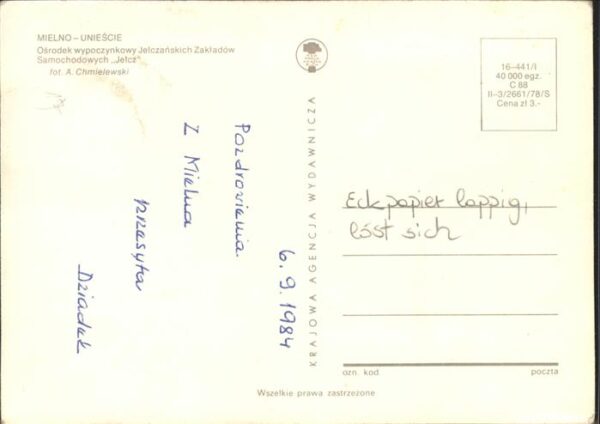 MIELNO – UNIEŚCIE
Ośrodek wypoczynkowy Jelczańskich Zakładów
Samochodowych „Jelcz”
fot. A. Chmielewski
16-441/I
40 000 egz.
C 88
II-3/2661/78/S
Cena zł 3.-
6.9.1984
Pozdrowienia
Z Mielna
przesyła
Dziadek
KRAJOWA AGENCJA WYDAWNICZA
Eckpapier lappig,
löst sich
ozn. kod
poczta
Wszelkie prawa zastrzeżone